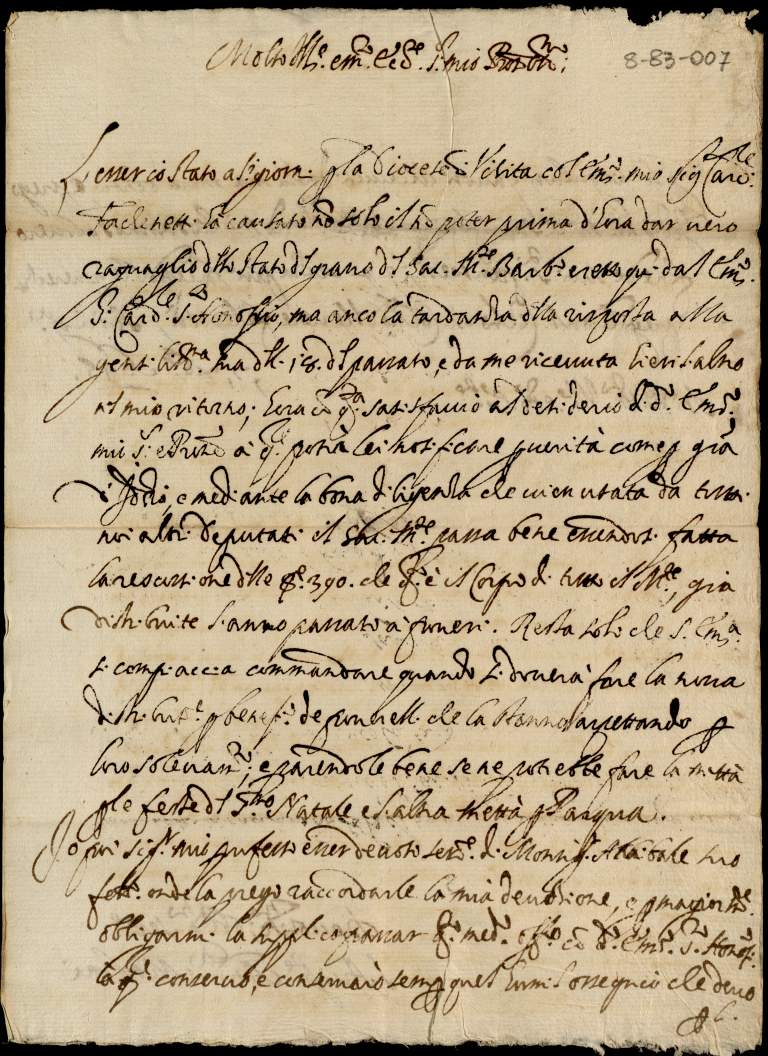 Molto Ill.re em.to Ecc.te S.r mio
8-83-007
L'esser io stato a S.i giorn. p la Diocese i Visita col Em.o mio Sig. Card.le
Fachenett. hà causato nõ solo il nõ poter prima d'hora dar vero
raguaglio d'llo stato d'l grano d'l Sac. M.te Barb.o eretto qui dal Em.o
S. Card.le S. Honofrio, ma anco la tardanza d'lla risposta alla
gentiliss.ma sua d'lli 18. d'l passato, e da me ricevuta hieri l'altro
n'l mio ritorno; hora cõ q.a satisfaccio al desiderio d. d.o Em.o
mio S.r e Prõne à q. potrà lei notificare p verità come p grã
i Iddio, e mediante la bona diligenza che vien usata da tutti
noi altri Deputati il Sac. M.te passa bene essendosi fatta
la rescussione d'lle 390. che q. è il Corpo di tutto il M.te, già
distribuite l'anno passato à poveri. Resta solo che S. Em.a
si compiaccia commandare quando si doverà fare la nova
distribut.e p benef.o de poverelli che la stanno aspettando p
loro sollevam.to; e parendole bene se ne potrebbe fare la mettà
p le feste d'l S.mo Natale, e l'altra mettà p Pasqua.
Io poi Sig.r mio professo esser devoto ser.re di Monsig. suo
onde la prego raccordarle la mia devotione, e p magiorm.te
obligarmi la supplico passar q. med.o off.o cõ d.o Em.o S. Honof.
la q. conservo, e conservarò sempre quel humil ossequio che devo